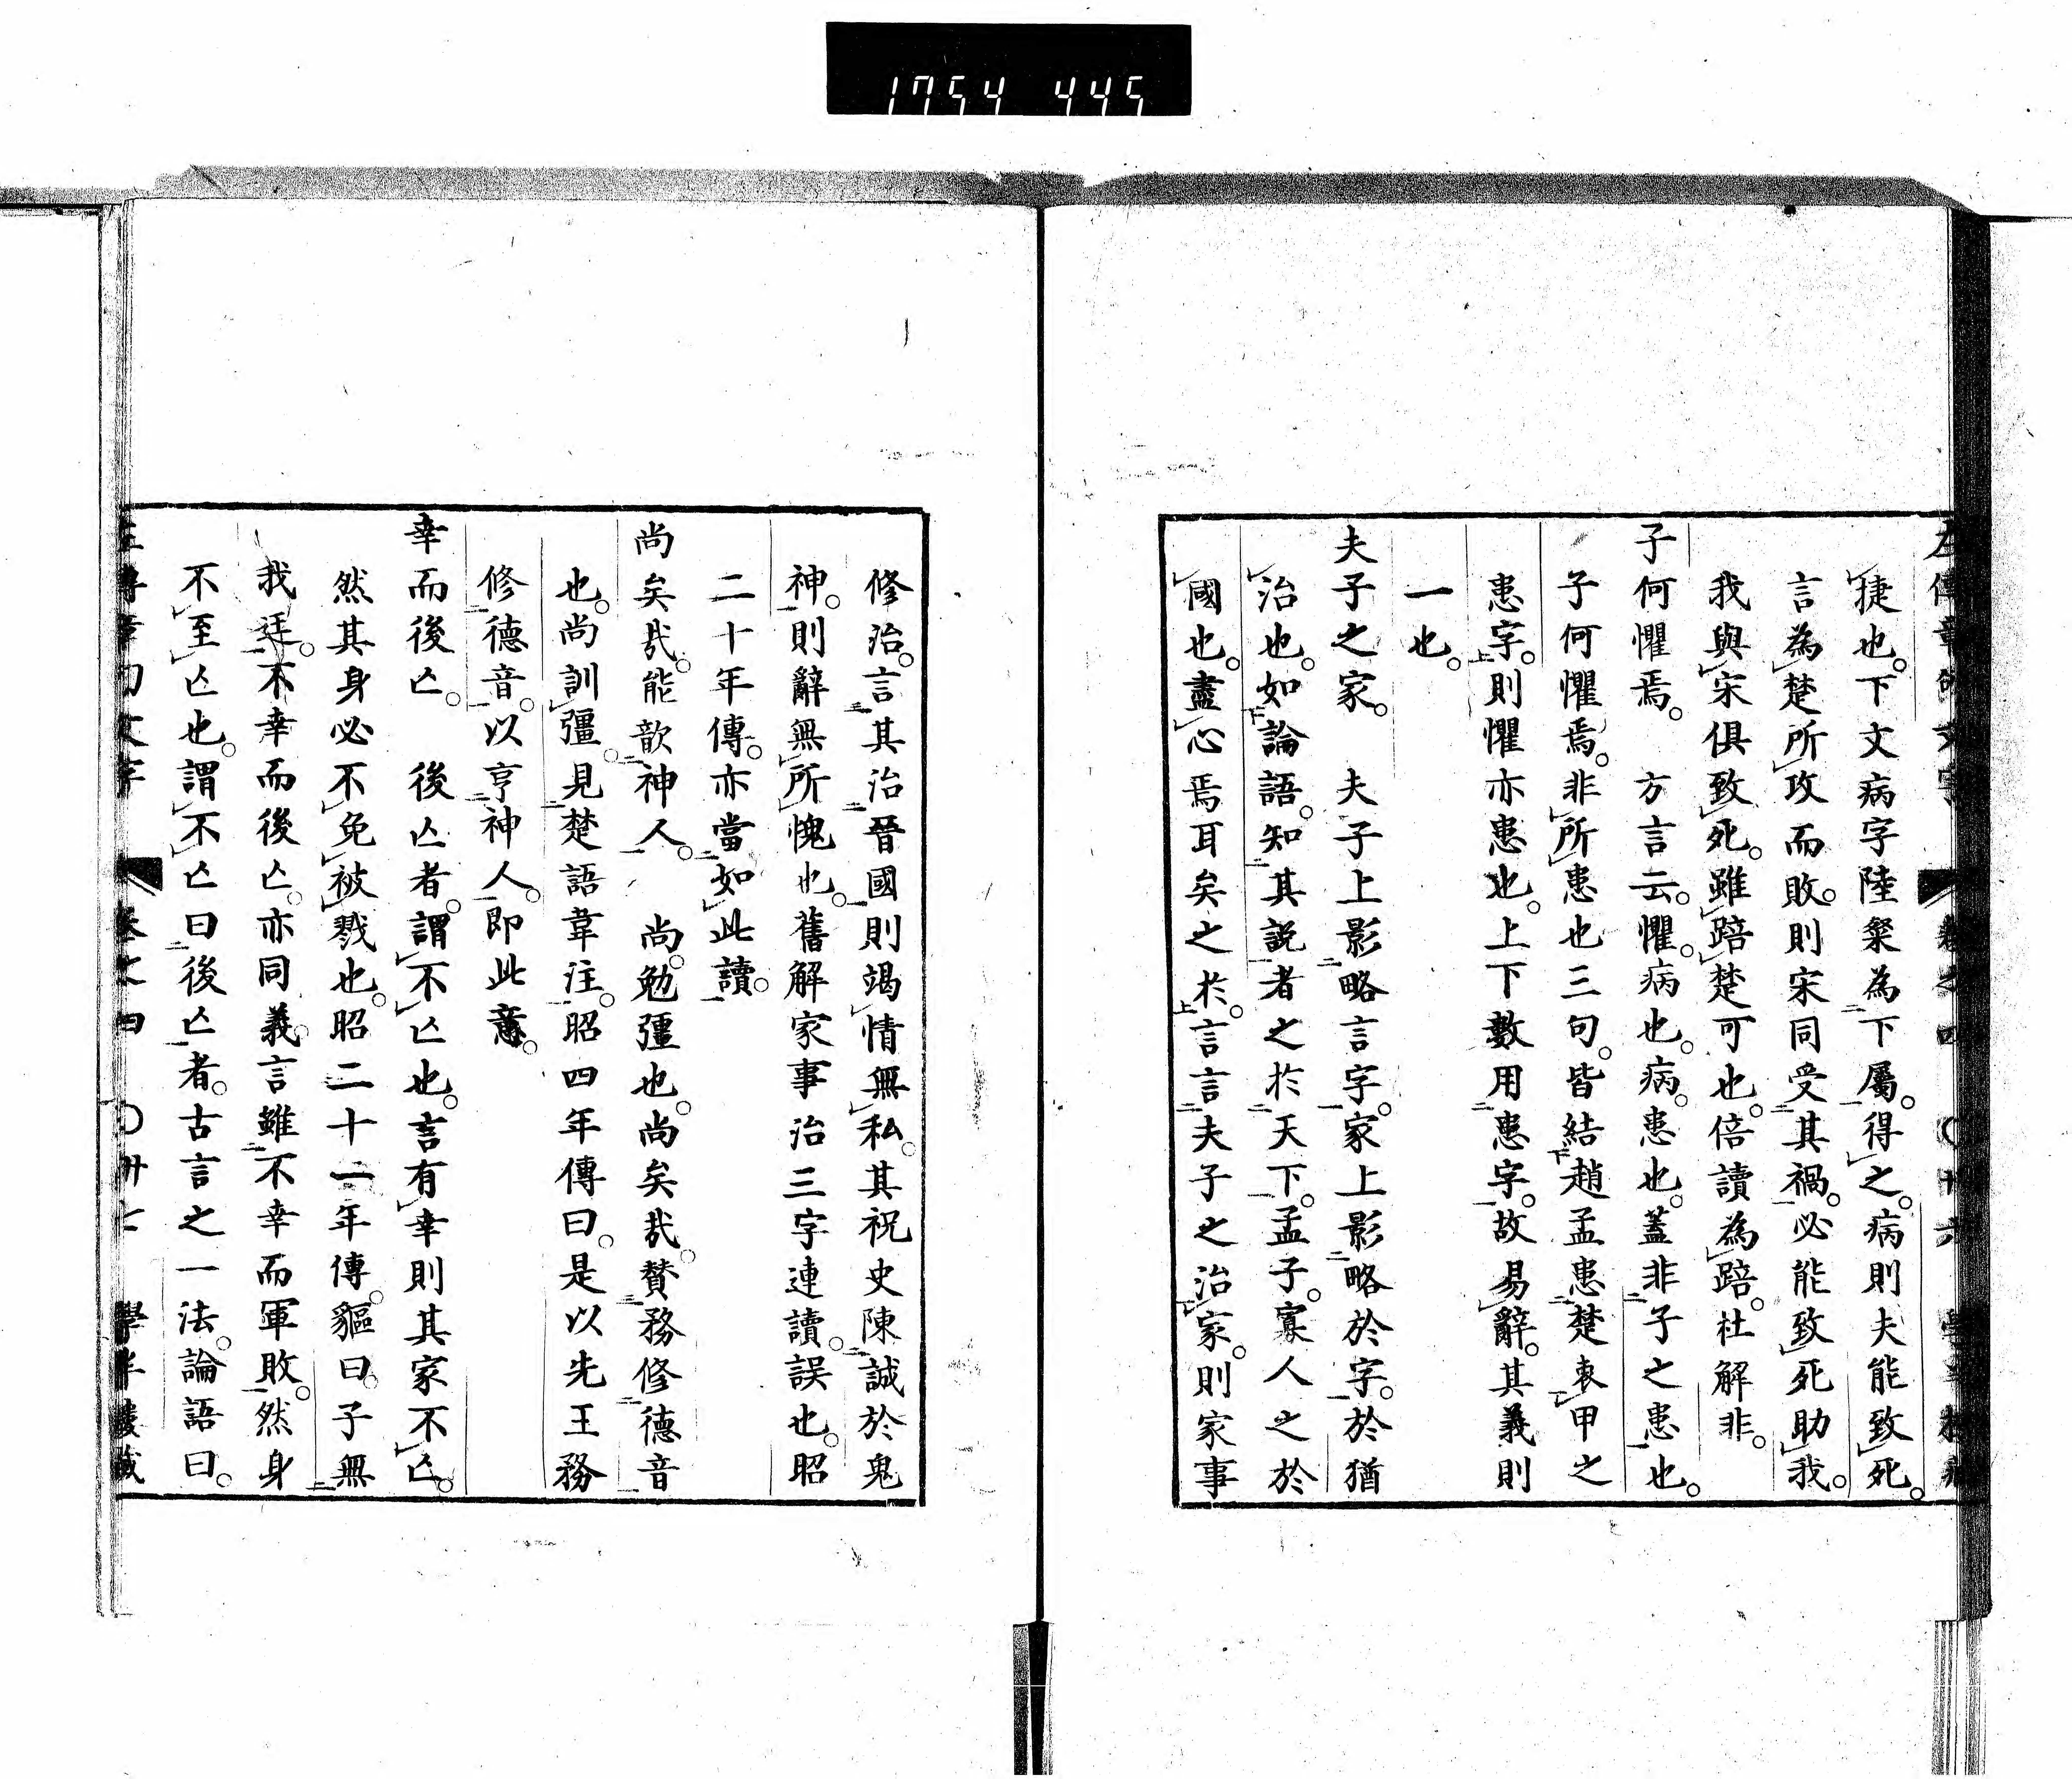 1754 445
捷也。下文病字陸粲為下屬。得之。病則夫能致死。
言為楚所攻而敗。則宋同受其禍。必能致死助我。
我與宋俱致死。雖踣楚可也。倍讀為踣。杜解非。
子何懼焉。　方言云。懼。病也。病。患也。蓋非子之患也。
子何懼焉。非所患也三句。皆結趙孟患楚衷甲之
患字。則懼亦患也。上下數用患字。故易辭。其義則
一也。
夫子之家。　夫子上影略言字。家上影略於字。於猶
治也。如論語。知其説者之於天下。孟子。寡人之於
國也。盡心焉耳矣之於。言言夫子之治家。則家事
修治。言其治晉國則竭情無私。其祝史陳誠於鬼
神。則辭無所愧也。舊解家事治三字連讀。誤也。昭
二十年傳。亦當如此讀。
尚矣哉。能歆神人。　尚。勉彊也。尚矣哉。賛務修德音
也。尚訓彊。見楚語韋注。昭四年傳曰。是以先王務
修德音。以亨神人。即此意。
幸而後亾。　後亾者。謂不亾也。言有幸則其家不亾。
然其身必不免被戮也。昭二十一年傳。貙曰。子無
我迋。不幸而後亾。亦同義。言雖不幸而軍敗。然身
不至亾也。謂不亾曰後亾者。古言之一法。論語曰。